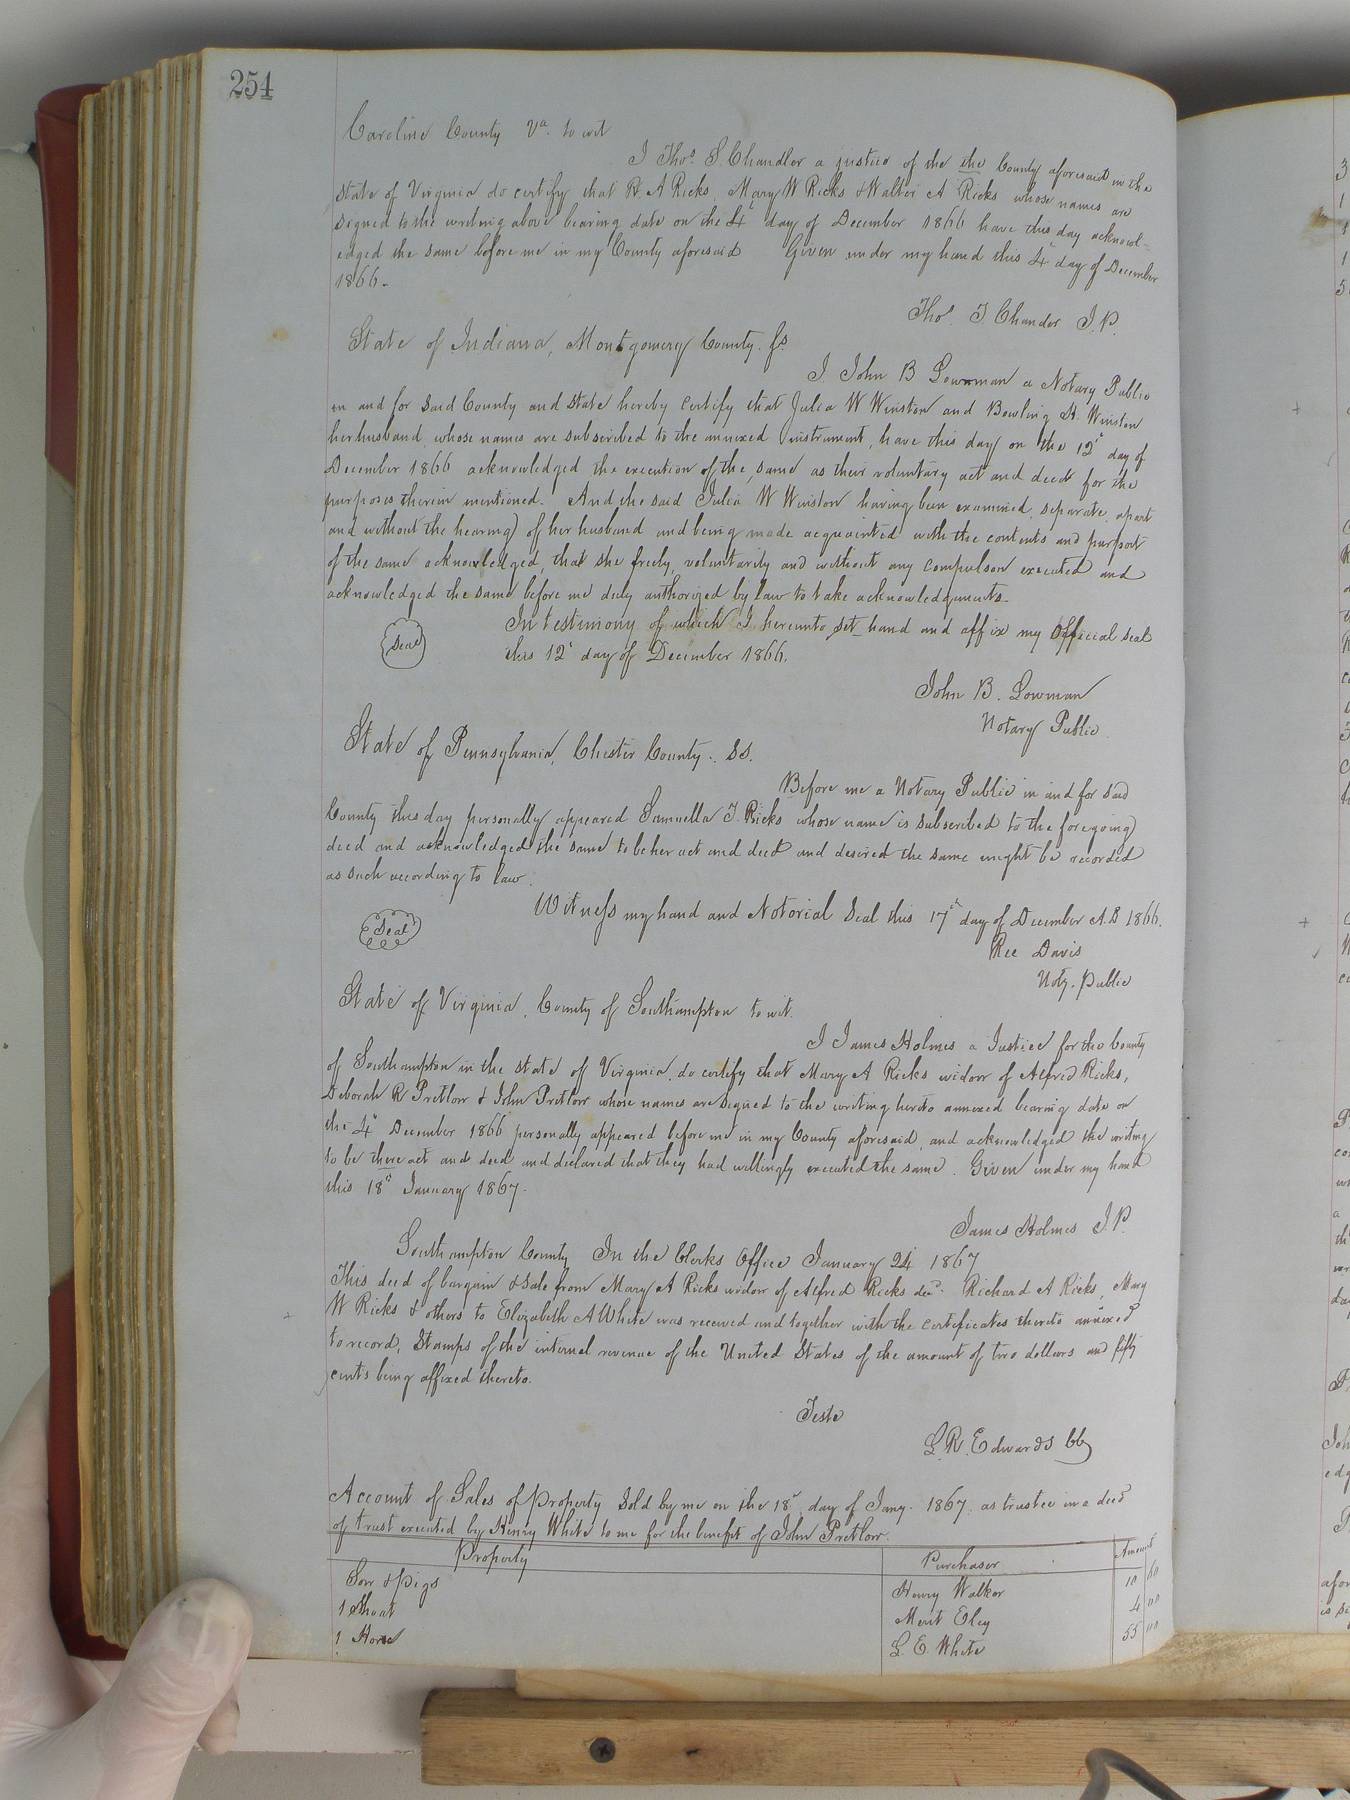 254
Caroline County Va. to wit
I Thos. S. Chandler a justice of the the County aforesaid in the
State of Virginia do certify that R. A Ricks, Mary W Ricks & Walter A Ricks whose names are
signed to the writing above bearing date on the 4" day of December 1866 have this day acknowl-
edged the same before me in my County aforesaid Given under my hand this 4" day of December
1866.
Thos. T. Chandor J.P.
State of Indiana, Montgomery County. ss.
I John B Lowman a Notary Public
in and for said County and State hereby certify that Julia W Winston and Bowling H. Winston
her husband, whose names are subscribed to the annexed instrument, have this day on the 12" day of
December 1866 acknowledged the execution of the same as their voluntary act and deed for the
purposes therein mentioned. And the said Julia W Winston having been examined, separate, apart
and without the hearing of her husband and being made acquainted with the contents and purport
of the same acknowledged, that she freely, voluntarily and without any compulson executed and
acknowledged the same before me duly authorized by law to take acknowledgments.
In testimony of which I hereunto set hand and affix my Official seal
Seal
this 12" day of December 1866.
John B. Lowman
Notary Public
State of Pennsylvania, Chester County. SS.
Before me a Notary Public in and for said
County this day personally appeared Samuella T. Ricks whose name is subscribed to the foregoing
deed and acknowledged the same to be her act and deed and desired the same might be recorded
as such according to law.
Witness my hand and Notorial Seal this 17th day of December A.D 1866.
Seal
Ree Davis
Noty. Public
State of Virginia, County of Southampton to wit.
I James Holmes a Justice for the County
of Southampton in the state of Virginia, do certify that Mary A Ricks widow of Alfred Ricks,
Deborah R Pretlow & John Pretlow whose names are signed to the writing hereto annexed bearing date on
the 4" December 1866 personally appeared before me in my County aforesaid, and acknowledged the writing
to be there act and deed and declared that they had willingly executed the same. Given under my hand
this 18" January 1867.
James Holmes J.P.
Southampton County In the Clerks Office January 24 1867
This deed of bargain & Sale from Mary A Ricks widow of Alfred Ricks decd. Richard A Ricks, Mary
W Ricks & others to Elizabeth A White was received and together with the certificates thereto annexed
to record, Stamps of the internal revenue of the United States of the amount of two dollars and fifty
cents being affixed thereto.
Teste
L. R. Edwards CC
Account of Sales of Property Sold by me on the 18" day of Jany. 1867, as trustee in a deed
of trust executed by Henry White to me for the benefit of John Pretlow.
Property Purchaser Amount
Sow & Pigs Henry Walker 10 60
1 Shoat Merit Eley 4 00
1 Horse L. E. White 55 00